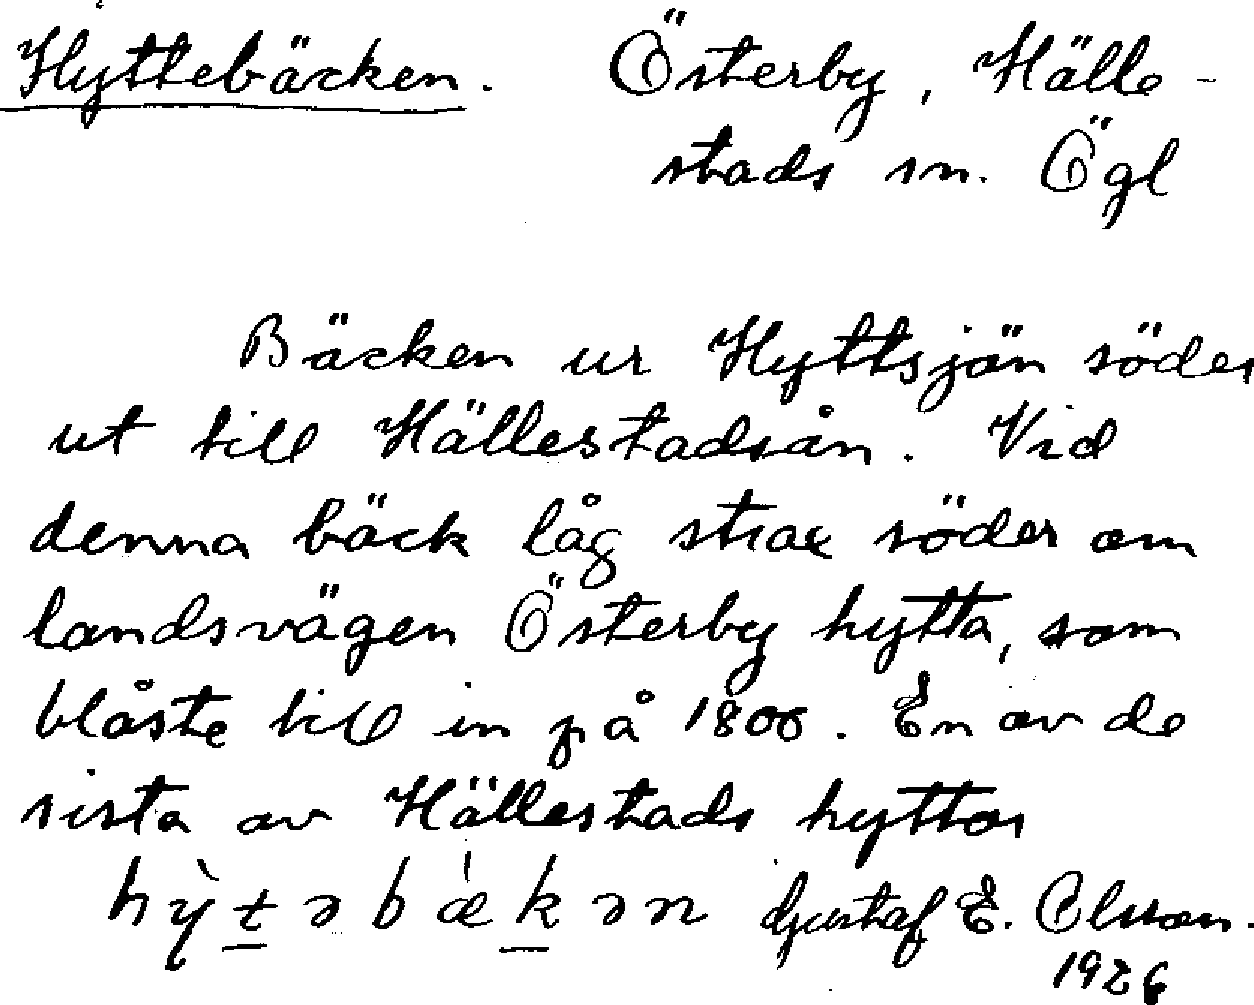 Hyttebäcken. Österby, Hälle-
stads sn. Ögl
Bäcken ur Hyttsjön söder
ut till Hällestadsån. Vid
denna bäck låg strax söder om
landsvägen Österby hytta, som
blåste till in på 1800. En av de
sista av Hällestads hyttor
hỳt̲əbæ̍k̲ən Gustaf E. Olsson.
1926